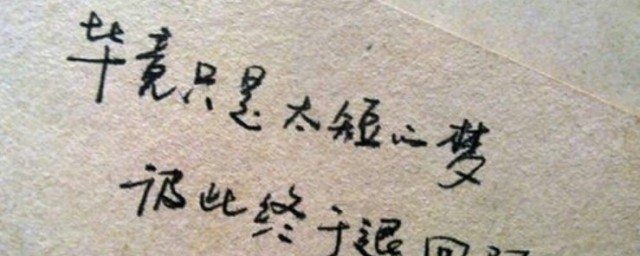 毕竟只是太短的梦
彼此终于退回